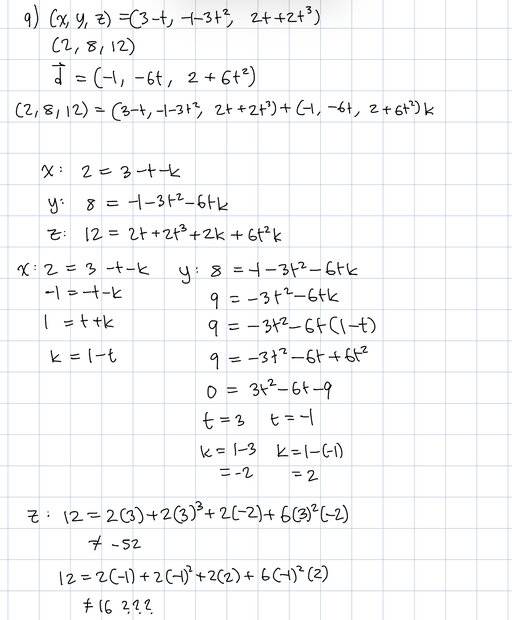 9) (x, y, z) = (3-t, -1-3t², 2t+2t³)
(2, 8, 12)
d⃗ = (-1, -6t, 2+6t²)
(2, 8, 12) = (3-t, -1-3t², 2t+2t³) + (-1, -6t, 2+6t²)k
x: 2 = 3-t-k
y: 8 = -1-3t²-6tk
z: 12 = 2t+2t³+2k+6t²k
x: 2 = 3-t-k
-1 = -t-k
1 = t+k
k = 1-t
y: 8 = -1-3t²-6tk
9 = -3t²-6tk
9 = -3t²-6t(1-t)
9 = -3t²-6t+6t²
0 = 3t²-6t-9
t = 3 t = -1
k = 1-3 k = 1-(-1)
= -2 = 2
z: 12 = 2(3)+2(3)³+2(-2)+6(3)²(-2)
≠ -52
12 = 2(-1)+2(-1)²+2(2)+6(-1)²(2)
≠ 16 ???